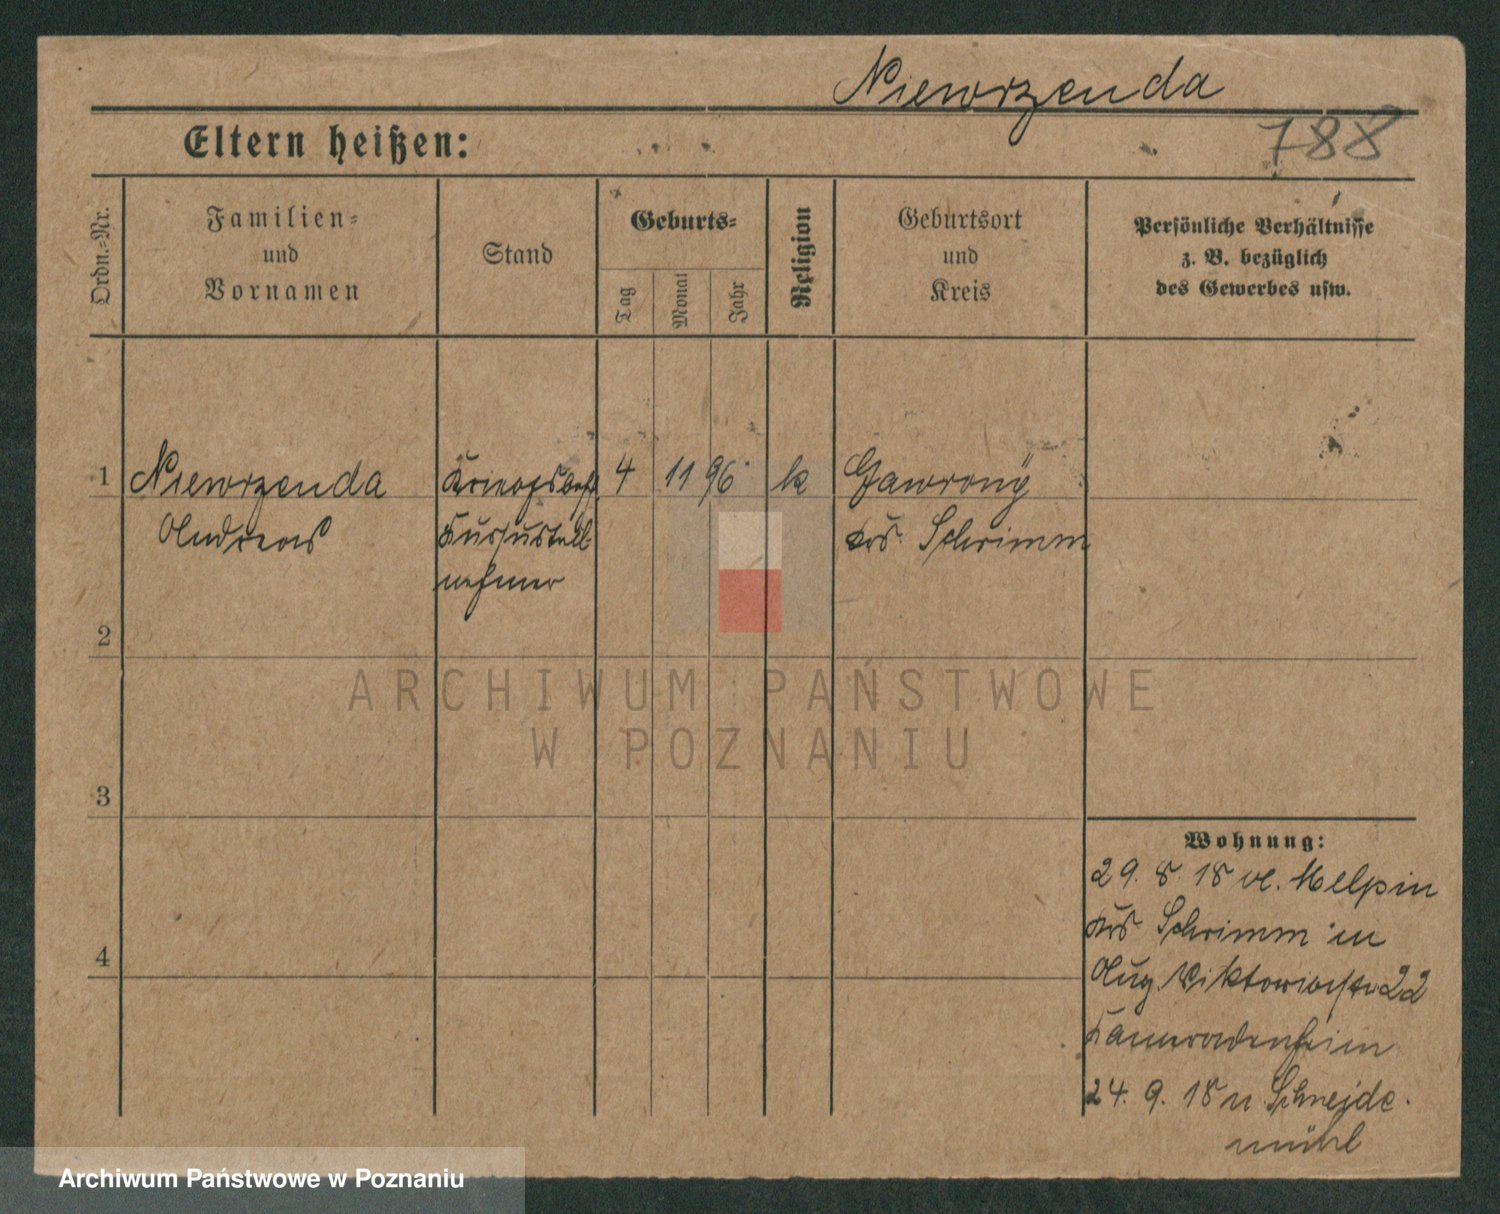 Niewrzenda
788
Eltern heißen:
Ordn.-Nr.
Familien- und Vornamen
Stand
Geburts-
Tag
Monat
Jahr
Religion
Geburtsort und Kreis
Persönliche Verhältnisse
z. B. bezüglich
des Gewerbes usw.
1 Niewrzenda 4 11 96 k Gawrony
Andreas Krs. Schrimm
nehmer
2
3
4
Wohnung:
29. 8. 18 v. Melpin
Krs Schrimm in
Aug. Viktoriastr 22
Kameradenheim
24. 9. 18 n Schneide-
mühl
ARCHIWUM PAŃSTWOWE
W POZNANIU
Archiwum Państwowe w Poznaniu